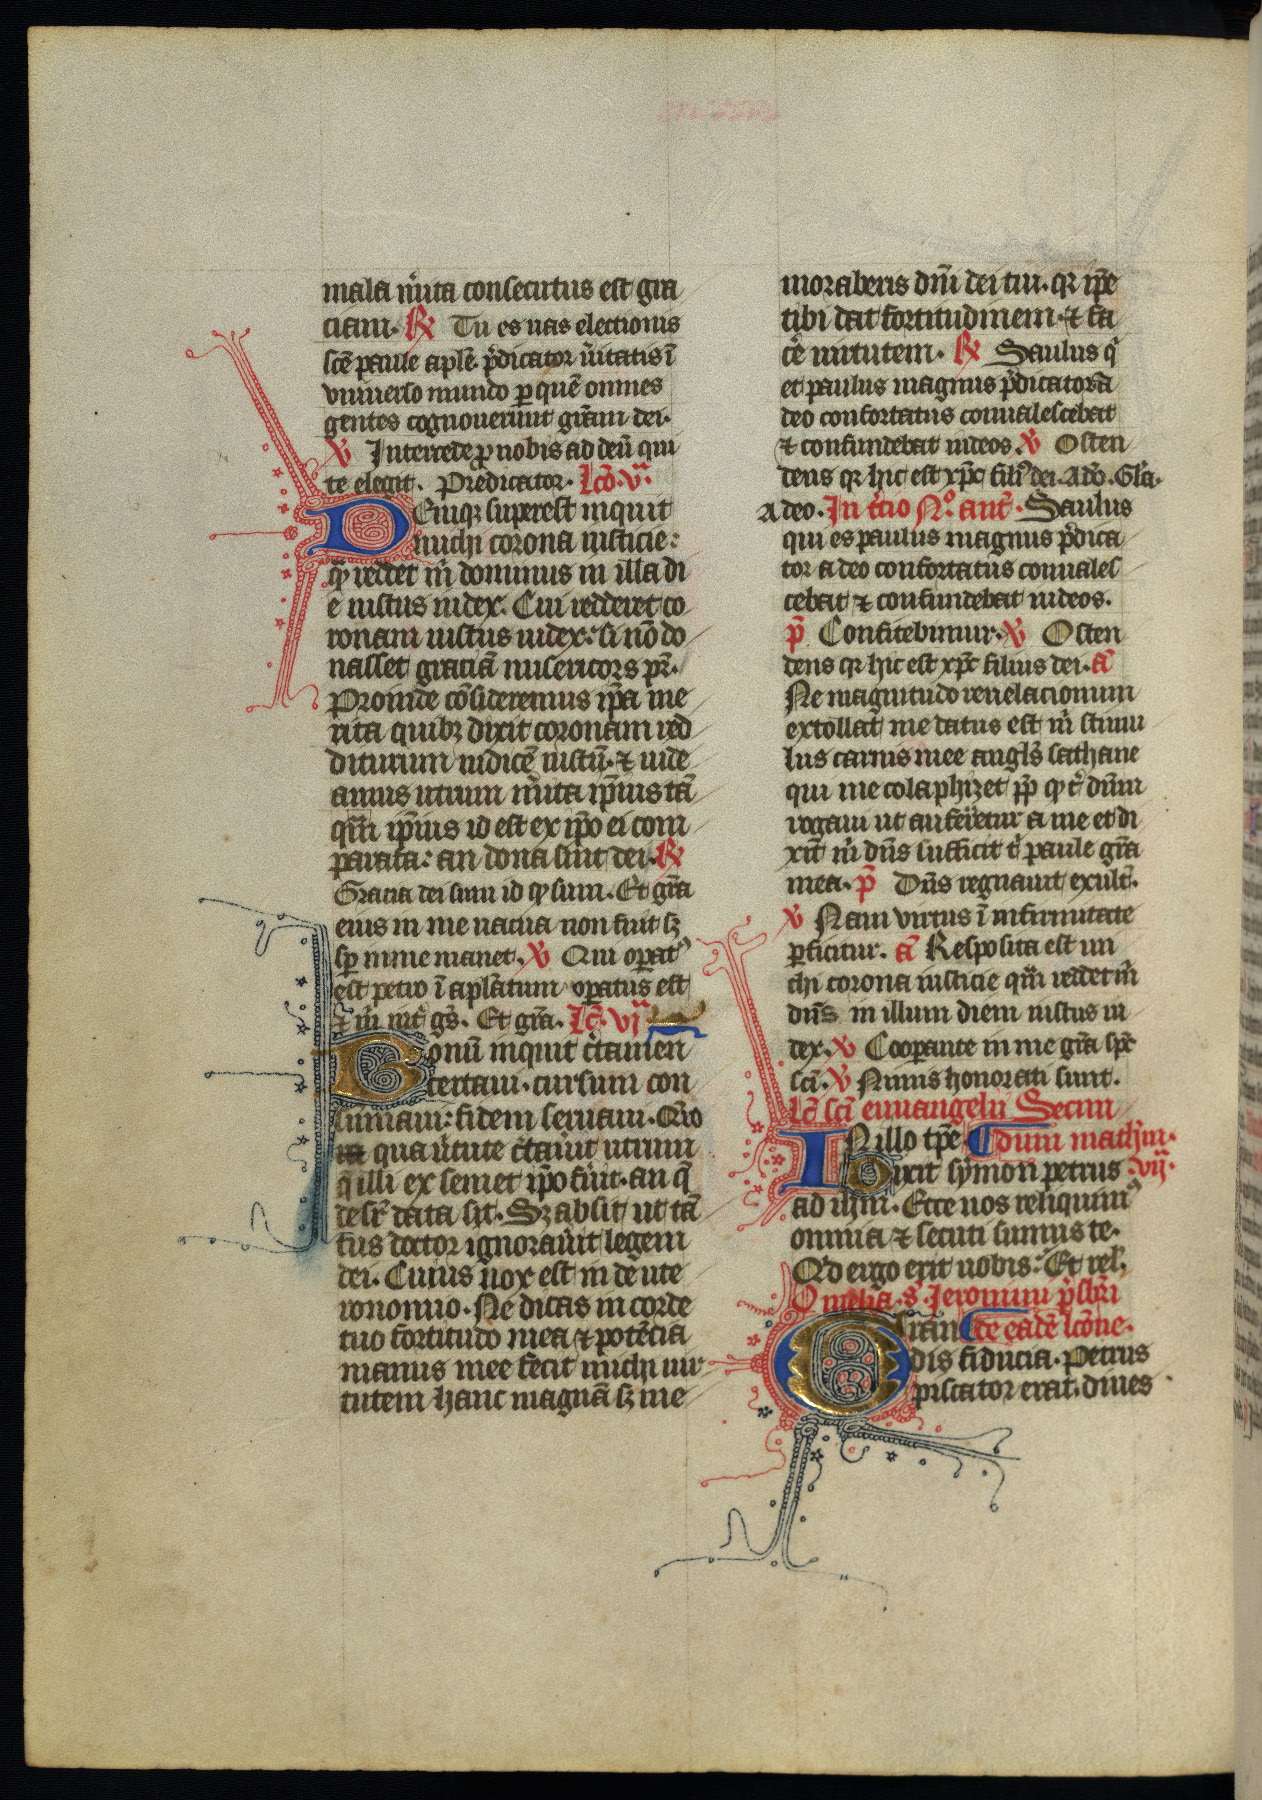 mala m̄ita consecutus est gra
ciam. ℟ Tu es uas electionis
scē paule aplē p̄dicator ūitatis ī
vniuerso mundo p quē omnes
gentes cognouerunt grām dei.
℣ Intercede p nobis ad deū qui
te elegit. Predicator. Lcō. v.
Deniqꝫ superest inquit
michi corona iusticie:
qͫ reddet m̄ dominus in illa di
e iustus iudex. Cui redderet co
ronam iustus iudex: si nō do
nasset graciā misericors pr̄.
Proinde cōsideremus ip̄a me
rita quibꝫ dixit coronam red
diturum iudicē iustū. ⁊ uide
amus utrum m̄ita ip̄ius tā
qͫ ip̄ius id est ex ip̄o ei com
parata: an dona sint dei. ℟
Gracia dei sum id qͩ sum. Et grā
eius in me uacua non fuit sꝫ
sp̄ in me manet. ℣ Qui operatꝰ
est petro ī aplatum operatus est
⁊ m̄ int̄ gēs. Et grā. Lc̄. vi
Bonū inquit c̄tamen
certaui. cursum con
sumaui: fidem seruaui. Quo
qua ūtute c̄tauit utrum
qͣ illi ex semet ip̄o fuit. an qͣ
desr̄ data sit. Sꝫ absit ut tā
tus doctor ignorauit legem
dei. Cuius uox est in deute
ronomio. Ne dicas in corde
tuo fortitudo mea ⁊ potēcia
manus mee fecit michi uir
tutem hanc magnā sꝫ me
moraberis dnī dei tui. qꝛ ip̄e
tibi dat fortitudinem. ⁊ fa
cē uirtutem. ℟ Saulus qͥ
et paulus magnus p̄dicator a
deo confortatus conualescebat
⁊ confundebat iudeos. ℣ Osten
dens qꝛ hic est xp̄c filiꝰ dei. Adō. Glīa.
A deo. In t̄cio Nº. ant̄. Saulus
qui es paulus magnus p̄dica
tor a deo confortatus conuales
cebat ⁊ confundebat iudeos.
p̄ Confitebimur. ℣ Osten
dens qꝛ hic est xp̄c filius dei. a͞
Ne magnitudo reuelacionum
extollat me datus est m̄ stimu
lus carnis mee angls̄ sathane
qui me colaphizet pp̄ qͩ t̄ dnm̄
rogaui ut auferetur a me et di
xit m̄ dn̄s sufficit t̄ paule grā
mea. p̄ Dn̄s regnauit exult̄.
℣ Nam virtus ī infirmitate
perficitur. a͞ Resposita est mi
chi corona iusticie qͫ reddet m̄
dn̄s in illum diem iustus iu
dex. ℣ Cooperante in me grā sp̄c
scī. ℣ Nimis honorati sunt.
Lc̄ scī euuangelii Secun
In illo tp̄e dum mathm.
Dixit symon petrus .vij.
ad ihm̄. Ecce nos reliquimꝰ
omnia ⁊ secuti sumus te.
Qͩ ergo erit nobis: Et rel̄.
Omelia. s̄. Jeronimi p̄sbri
Gran de eadē lcōne.
dis fiducia. Petrus
piscator erat. diues